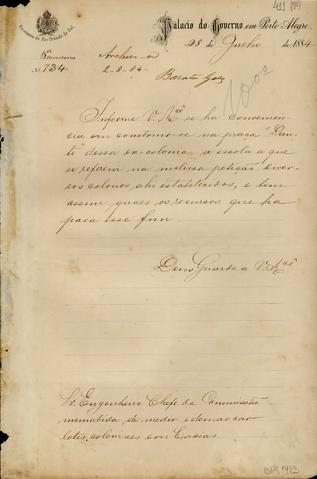 Provincia do Rio Grande do Sul.
Palacio do Governo em Porto Alegre,
28 de Junho de 1884
Directoria
N.º 1724
Archive-se
2-8-84
Informe V. S.ª se ha convenien-
cia em construir-se na praça "Dan-
te" dessa ex-colonia, a escola a que
se referem na inclusa petição diver-
sos colonos ahi estabelecidos, e bem
assim quaes os recursos que ha
para esse fim.
Deus Guarde a V. S.ª
Sr. Engenheiro Chefe da Commissão
incumbida de medir e demarcar
lotes coloniaes em Caxias.